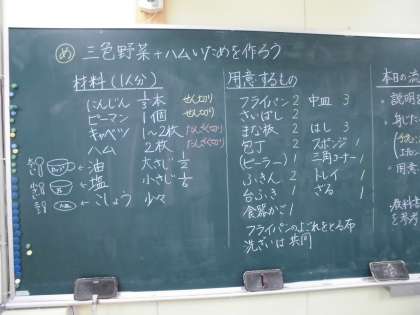 め 三色野菜+ハムいためを作ろう
材料(1人分)
にんじん 1/3本 せん切り
ピーマン 1個 せん切り
キャベツ 1~2枚 たんざく切り
ハム 2枚 たんざく切り
油 大さじ1/2
塩 小さじ1/6
こしょう 少々
用意するもの
フライパン 2 中皿 3
さいばし 2
まな板 2 はし 3
包丁 2 スポンジ 1
(ピーラー) 1 三角コーナー 1
ふきん 2 トレイ 1
台ふき 1 ざる 1
食器かご 1
フライパンのよごれをとる布
洗ざいは共同
本日の流
説明
身じた
用意
教科書
を参考